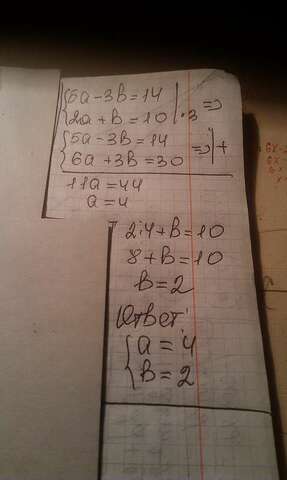 {5a-3b=14
{2a+b=10 |·3 =>
{5a-3b=14
{6a+3b=30 =>|+
11a=44
a=4
2·4+b=10
8+b=10
b=2
Ответ:
{a=4
{b=2